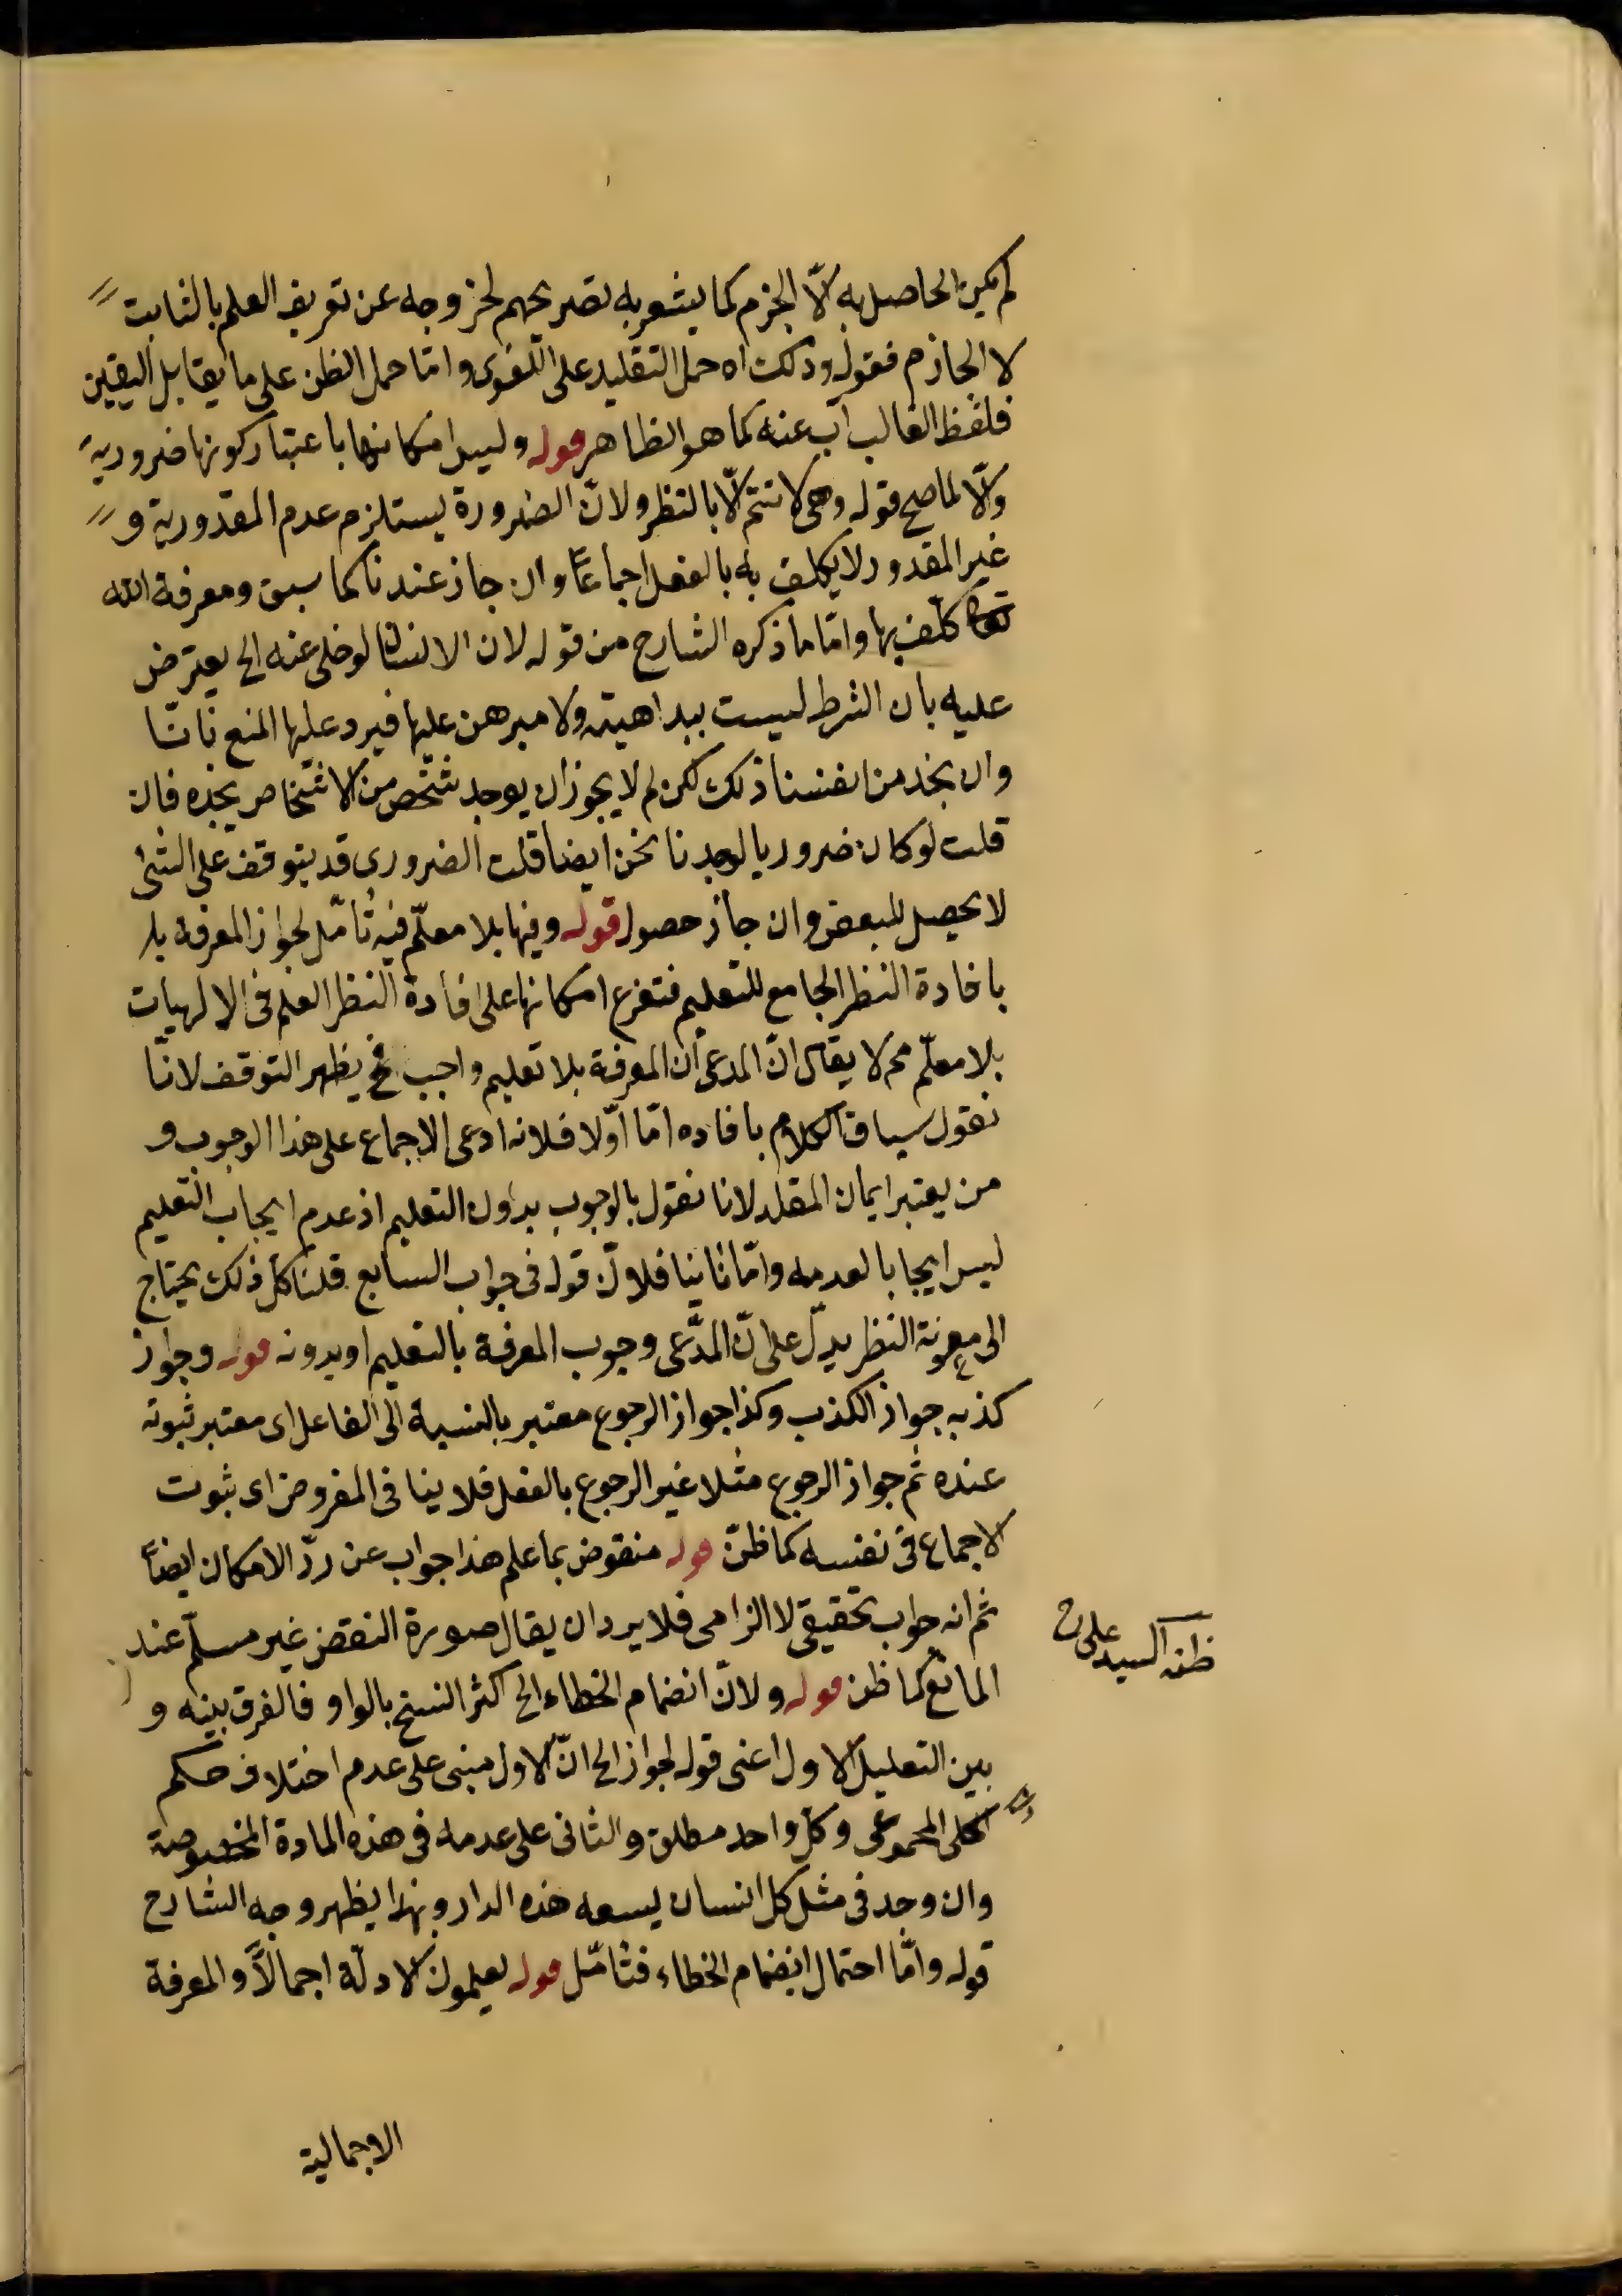 لم يكن الحاصل به الّا الجزم كما يشعر به تصريحهم لخروجه عن تعريف العلم بالثابت
لا الجازم فقوله وذلك اه حمل التقليد على اللغوى وامّا حمل الظن على ما يقابل اليقين
فلفظ الغالب آب عنه كما هو الظاهر قوله وليس امكانها باعتبار كونها ضرورية
والّا لما صح قوله وهى لا تتم الّا بالنظر ولانّ الضرورة يستلزم عدم المقدورية و
غير المقدور لا يكلف به بالفعل اجماعًا وان جاز عندنا كما سبق ومعرفة الله
تعالى كلّف بها وامّا ما ذكره الشارح من قوله لان الانسان لو خلى عنه الخ يعترض
عليه بان الشرط ليست ببداهية ولا مبرهن عليها فيرد عليها المنع بانّا
وان نجد من انفسنا ذلك لكن لم لا يجوز ان يوجد شخص من الاشخاص يجده فان
قلت لو كان ضروريا لوجدنا نحن ايضا قلت الضرورى قد يتوقف على الشئ
لا يحصل للبعض وان جاز حصول قوله وفيها بلا معلّم فيه تأمّل لجواز المعرفة بلا
بافادة النظر الجامع للتعليم فتفرع امكانها على افادة النظر العلم فى الالهيات
بلا معلّم مم لا يقال انّ المدعى ان المعرفة بلا تعليم واجب فح يظهر التوقف لانّا
نقول سياق الكلام بافاده امّا اوّلا فلانه ادعى الاجماع على هذا الوجوب و
من يعتبر ايمان المقلد لانا نقول بالوجوب بدون التعليم اذ عدم ايجاب التعليم
ليس ايجابا لعدمه وامّا ثانيا فلانّ قوله فى جواب السابع قلنا كل ذلك يحتاج
الى معونة النظر يدلّ على انّ المدّعى وجوب المعرفة بالتعليم او بدونه قوله وجواز
كذبه جواز الكذب وكذا جواز الرجوع معتبر بالنسبة الى الفاعل اى معتبر ثبوته
عنده ثم جواز الرجوع مثلا غير الرجوع بالفعل فلا ينافى المفروض اى ثبوت
الاجماع فى نفسه كما ظنّ قوله منقوض بما علم هذا جواب عن ردّ الامكان ايضًا
ثم انه جواب تحقيقى لا الزامى فلا يرد ان يقال صورة النقض غير مسلّم عند
ظنه السيد على ح
المانع كما ظن قوله ولانّ انضمام الخطاء الخ اكثر النسخ بالواو فالفرق بينه و
بين التعليل الاول اعنى قوله لجواز الخ انّ الاول مبنى على عدم اختلاف حكم
الكلى المجموعى وكل واحد مطلق والثانى على عدمه فى هذه المادة المخصوصة
وان وجد فى مثل كل انسان يسعه هذه الدار وبهذا يظهر وجه الشارح
قوله وامّا احتمال انضمام الخطاء فتأمّل قوله يعلمون الادلّة اجمالًا والمعرفة
الاجمالية